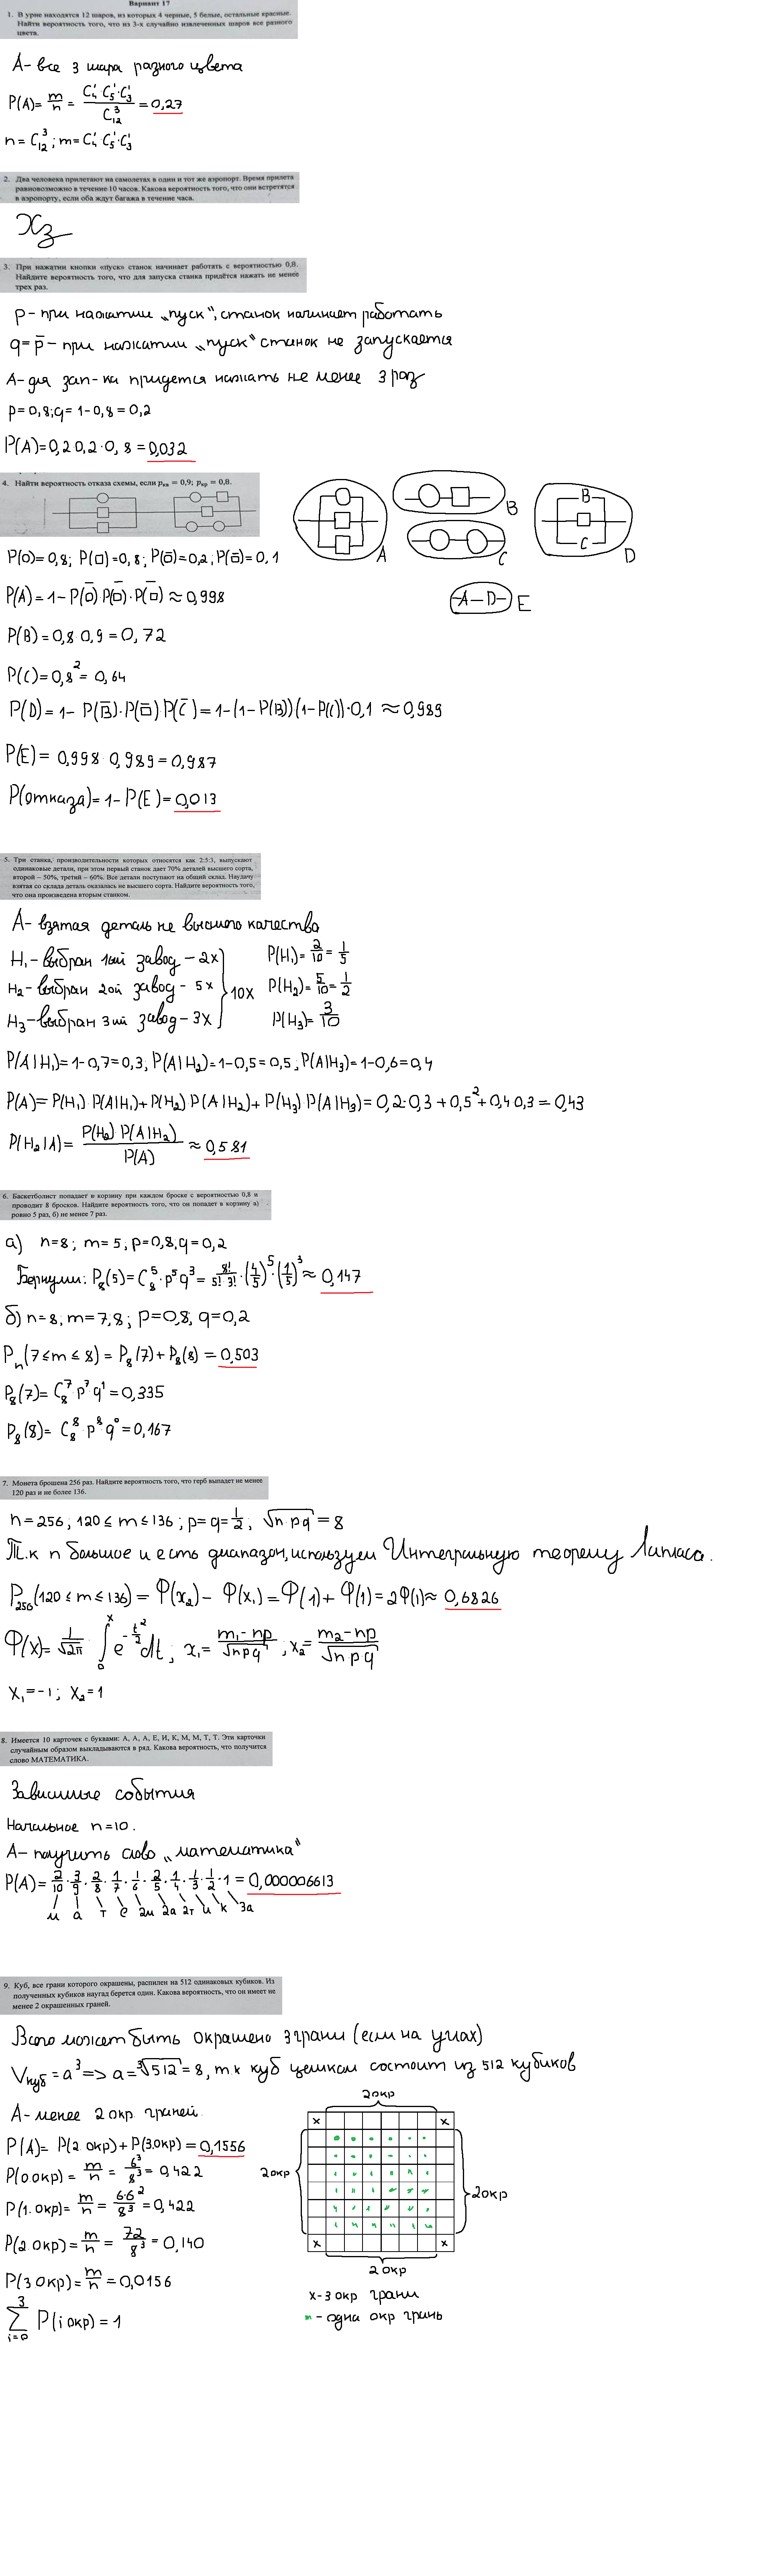 Вариант 17
1. В урне находятся 12 шаров, из которых 4 черные, 5 белые, остальные красные.
Найти вероятность того, что из 3-х случайно извлеченных шаров все разного
цвета.
A- все 3 шара разного цвета
P(A)= m/n = (C₄¹ C₅¹ · C₃¹)/C₁₂³ = 0,27
n = C₁₂³ ; m = C₄¹ C₅¹ · C₃¹
2. Два человека прилетают на самолетах в один и тот же аэропорт. Время прилета
равновозможно в течение 10 часов. Какова вероятность того, что они встретятся
в аэропорту, если оба ждут багажа в течение часа.
Хз
3. При нажатии кнопки «пуск» станок начинает работать с вероятностью 0,8.
Найдите вероятность того, что для запуска станка придётся нажать не менее
трех раз.
p - при нажатии „пуск“, станок начинает работать
q = p̄ - при нажатии „пуск“ станок не запускается
A - для зап-ка придется нажать не менее 3 раз
p = 0,8; q = 1-0,8 = 0,2
P(A) = 0,2 0,2 · 0,8 = 0,032
4. Найти вероятность отказа схемы, если pкв = 0,9; pкр = 0,8.
A
B
C
B
C
D
P(○) = 0,8; P(□) = 0,8; P(○̄) = 0,2; P(□̄) = 0,1
P(A) = 1 - P(○̄) P(□̄) · P(□̄) ≈ 0,998
-A-D- E
P(B) = 0,8 0,9 = 0,72
P(C) = 0,8² = 0,64
P(D) = 1 - P(B̄) · P(□̄) P(C̄) = 1-(1-P(B))(1-P(C)) · 0,1 ≈ 0,989
P(E) = 0,998 · 0,989 = 0,987
P(отказа) = 1 - P(E) = 0,013
5. Три станка, производительности которых относятся как 2:5:3, выпускают
одинаковые детали, при этом первый станок дает 70% деталей высшего сорта,
второй – 50%, третий – 60%. Все детали поступают на общий склад. Наудачу
взятая со склада деталь оказалась не высшего сорта. Найдите вероятность того,
что она произведена вторым станком.
A - взятая деталь не высшого качества
H₁ - выбран 1ый завод - 2x P(H₁) = 2/10 = 1/5
H₂ - выбран 2ой завод - 5x } 10x P(H₂) = 5/10 = 1/2
H₃ - выбран 3ий завод - 3x P(H₃) = 3/10
P(A|H₁) = 1-0,7 = 0,3; P(A|H₂) = 1-0,5 = 0,5; P(A|H₃) = 1-0,6 = 0,4
P(A) = P(H₁) · P(A|H₁) + P(H₂) P(A|H₂) + P(H₃) P(A|H₃) = 0,2·0,3 + 0,5² + 0,4 0,3 = 0,43
P(H₂|A) = P(H₂) P(A|H₂)/P(A) ≈ 0,581
6. Баскетболист попадает в корзину при каждом броске с вероятностью 0,8 и
проводит 8 бросков. Найдите вероятность того, что он попадет в корзину а)
ровно 5 раз, б) не менее 7 раз.
а) n=8; m=5, p=0,8, q=0,2
Бернули: P₈(5) = C₈⁵ · p⁵ q³ = 8!/(5! 3!) · (4/5)⁵ · (1/5)³ ≈ 0,147
б) n=8, m=7,8; p=0,8; q=0,2
Pₙ(7≤m≤8) = P₈(7) + P₈(8) = 0,503
P₈(7) = C₈⁷ p⁷ q¹ = 0,335
P₈(8) = C₈⁸ p⁸ q⁰ = 0,167
7. Монета брошена 256 раз. Найдите вероятность того, что герб выпадет не менее
120 раз и не более 136.
n = 256, 120 ≤ m ≤ 136; p = q = 1/2; √(n p q) = 8
Т.к n большое и есть диапазон, используем Интегральную теорему Лапласа.
P₂₅₆(120 ≤ m ≤ 136) = Ф(x₂) - Ф(x₁) = Ф(1) + Ф(1) = 2Ф(1) ≈ 0,6826
Ф(x) = 1/√(2π) ∫₀ˣ e^(-t²/2) dt; x₁ = (m₁-np)/√(npq); x₂ = (m₂-np)/√(npq)
x₁ = -1; x₂ = 1
8. Имеется 10 карточек с буквами: А, А, А, Е, И, К, М, М, Т, Т. Эти карточки
случайным образом выкладываются в ряд. Какова вероятность, что получится
слово МАТЕМАТИКА.
Зависимые события
Начальное n=10.
A - получить слово „математика“
P(A) = 2/10 · 3/9 · 2/8 · 1/7 · 1/6 · 2/5 · 1/4 · 1/3 · 1/2 · 1 = 0,000006613
м а т е 2м 2а 2т и к 3а
9. Куб, все грани которого окрашены, распилен на 512 одинаковых кубиков. Из
полученных кубиков наугад берется один. Какова вероятность, что он имеет не
менее 2 окрашенных граней.
Всего может быть окрашено 3 грани (если на углах)
Vкуб = a³ => a = ³√512 = 8, т.к куб целиком состоит из 512 кубиков
A - менее 2 окр. граней.
P(A) = P(2.окр) + P(3.окр) = 0,1556
P(0окр) = m/n = 6³/8³ = 0,422
P(1.окр) = m/n = 6·6²/8³ = 0,422
P(2.окр) = m/n = 72/8³ = 0,140
P(3 окр) = m/n = 0,0156
∑ᵢ₌₀³ P(i окр) = 1
2окр
x x
2окр
2окр
x x
2 окр
x - 3 окр грани
- одна окр грань